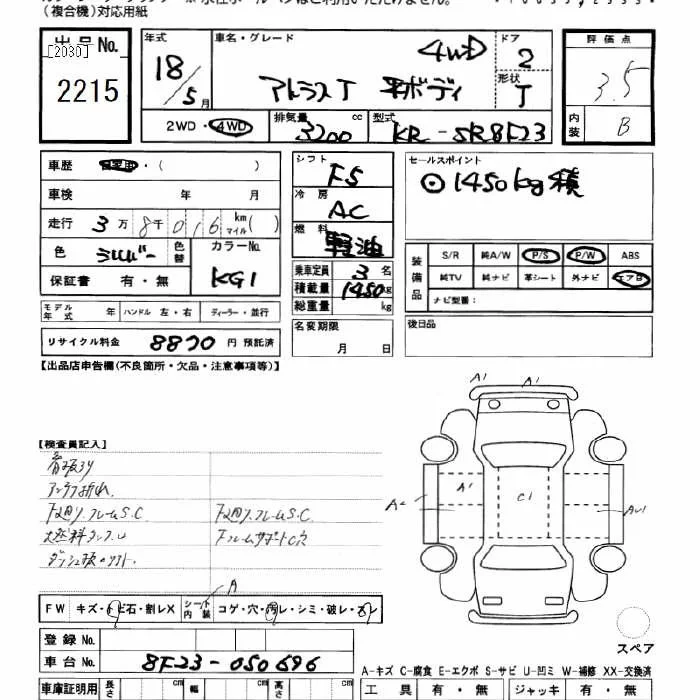 (複合機)対応用紙
出品No.
[2030]
2215
年式
18/5月
車名・グレード
4WD
アトラスT 平ボディ
ドア
2
形状
T
評価点
3.5
内装
B
2WD・4WD
排気量
3200 cc
型式
KR-SR8F23
車歴 自家用・( )
車検 年 月
走行 3万8千016 km マイル( )
色 シルバー 色替
カラーNo.
KG1
保証書 有・無
モデル年式 年 ハンドル 左・右 ディーラー・並行
リサイクル料金 8870円 預託済
シフト
F5
冷房
AC
燃料
軽油
乗車定員 3 名
積載量 1450 kg
総重量 kg
名変期限
月 日
セールスポイント
⊙1450kg積
装備品
S/R 純A/W P/S P/W ABS
純TV 純ナビ 革シート 外ナビ エアB
ナビ型番:
後日品
【出品店申告欄(不良箇所・欠品・注意事項等)】
【検査員記入】
荷扱キリ
アンテナ折れ
下廻り、フレームS.C
下廻り、フレームS.C
燃料タンクU
ダッシュ板
A
FW キズ・トビ石・割レX シート内装 コゲ・穴・汚レ・シミ・破レ・スレ
登録No.
車台No. 8F23-050696
車庫証明用 長さ cm 幅 cm 高さ cm
A1 A1
A2 A1 C1
スペア
A-キズ C-腐食 E-エクボ S-サビ U-凹ミ W-補修 XX-交換済
工具 有・無 ジャッキ 有・無